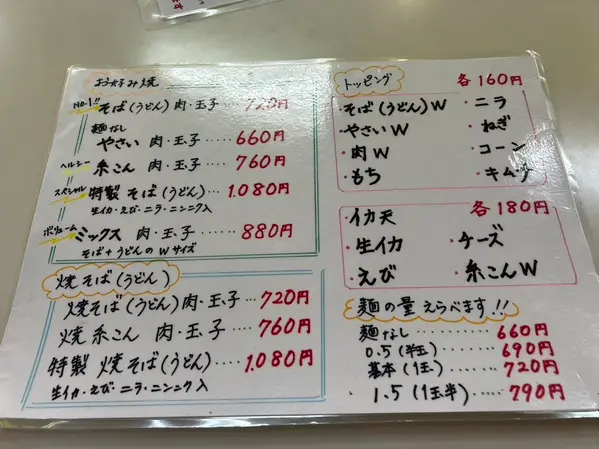 お好み焼
NO.1!! そば(うどん)肉・玉子… 720円
麺なし
やさい 肉・玉子…… 660円
ヘルシー 糸こん 肉・玉子…… 760円
スペシャル 特製 そば(うどん)… 1.080円
生イカ・えび・ニラ・ニンニク入
ボリューム ミックス 肉・玉子…… 880円
そば+うどんのWサイズ
焼そば(うどん)
焼そば(うどん)肉・玉・子… 720円
焼 糸こん 肉・玉・子… 760円
特製 焼そば(うどん)…… 1.080円
生イカ・えび・ニラ・ニンニク入
トッピング 各160円
・そば(うどん)W ・ニラ
・やさいW ・ねぎ
・肉W ・コーン
・もち ・キムチ
・イカ天 各180円
・生イカ ・チーズ
・えび ・糸こんW
麺の量えらべます!!
麺なし………… 660円
0.5(半玉)……… 690円
基本(1玉)……… 720円
1.5(1玉半)…… 790円